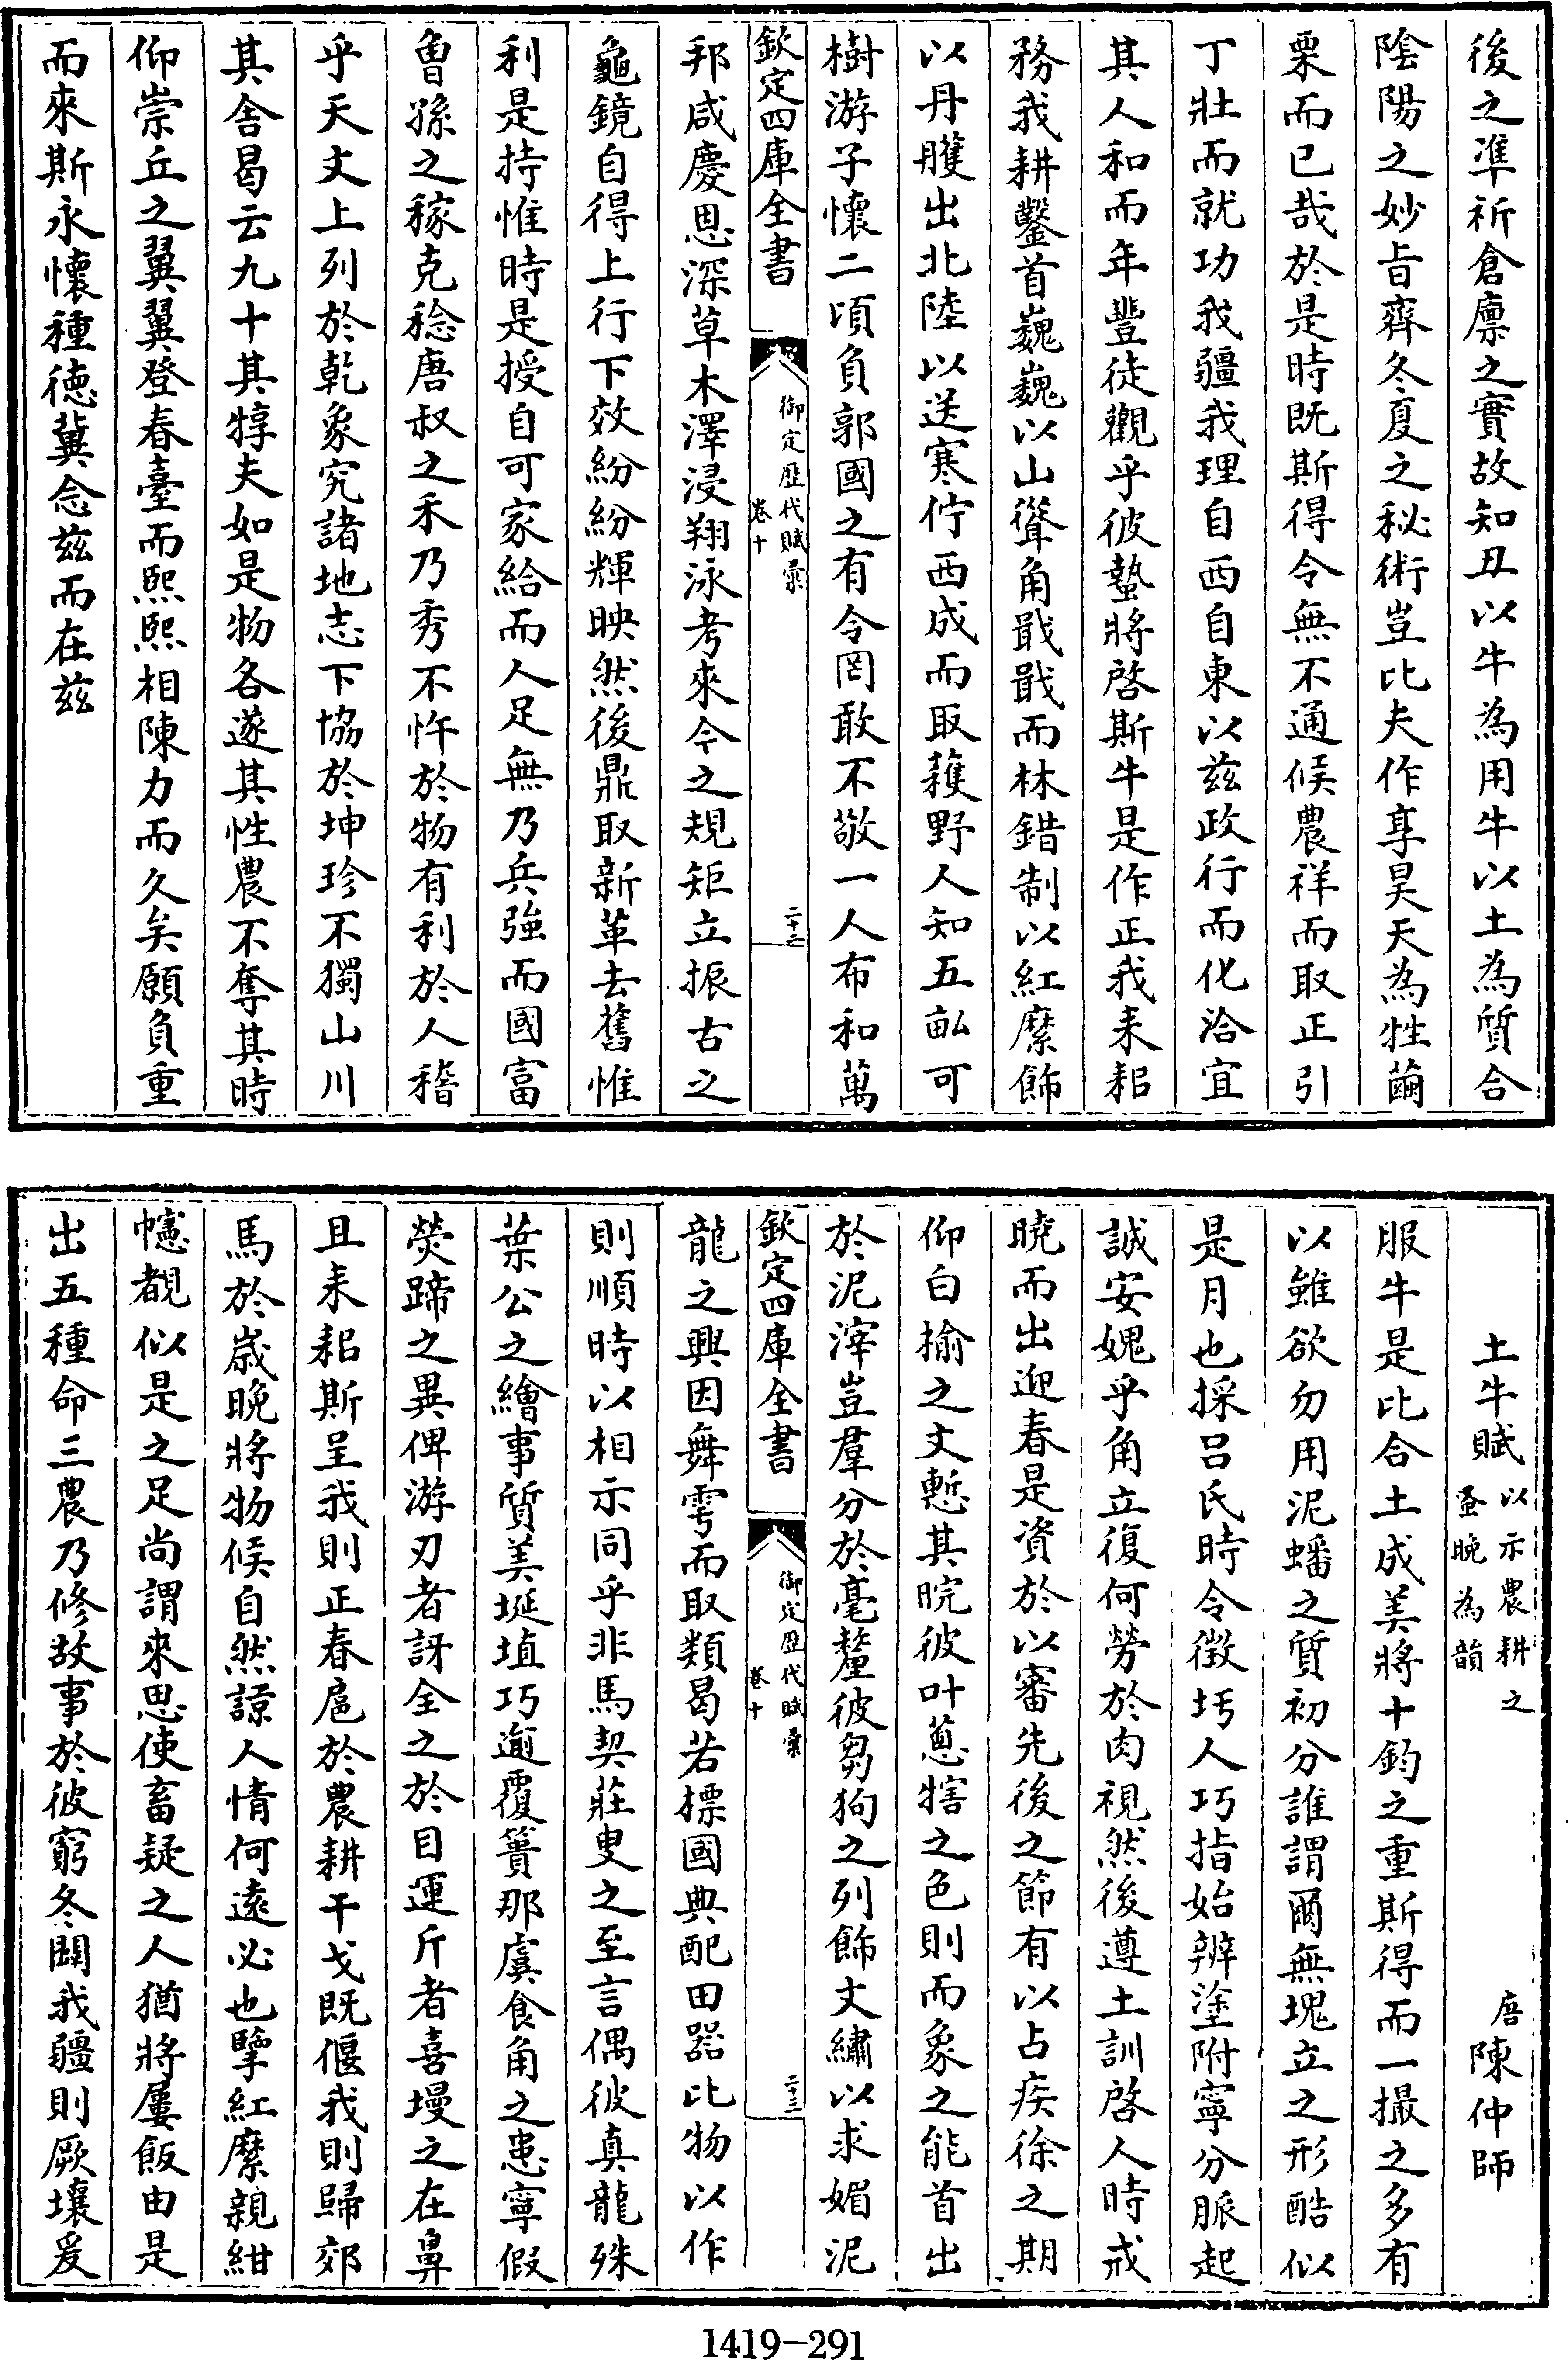 後之準祈倉廪之實故知丑以牛為用牛以土為質合
陰陽之妙旨齊冬夏之秘術豈比夫作享昊天為牲繭
栗而已哉於是時既斯得令無不通候農祥而取正引
丁壯而就功我疆我理自西自東以兹政行而化洽宜
其人和而年豐徒觀乎彼蟄將啓斯牛是作正我耒耜
務我耕鑿首巍巍以山聳角戢戢而林錯制以紅縻飾
以丹雘出北陸以送寒佇西成而取蓷野人知五畝可
樹游子懷二頃負郭國之有令罔敢不敬一人布和萬
欽定四庫全書
御定歴代賦彙
卷十
二十二
邦咸慶恩深草木澤浸翔泳考來今之規矩立振古之
龜鏡自得上行下效紛紛輝映然後鼎取新革去舊惟
利是持惟時是授自可家給而人足無乃兵強而國富
曾孫之稼克稔唐叔之禾乃秀不忤於物有利於人稽
乎天文上列於乾象究諸地志下協於坤珍不獨山川
其舍曷云九十其犉夫如是物各遂其性農不奪其時
仰崇丘之翼翼登春臺而熙熙相陳力而久矣願負重
而來斯永懷種徳冀念兹而在兹
土牛賦以示農耕之
蚤晚為韻
唐陳仲師
服牛是比合土成美將十鈞之重斯得而一撮之多有
以雖欲勿用泥蟠之質初分誰謂爾無塊立之形酷似
是月也採吕氏時令徴圬人巧指始辨塗附寧分脈起
誠安媿乎角立復何勞於肉視然後遵土訓啓人時戒
曉而出迎春是資於以審先後之節有以占疾徐之期
仰白榆之文慙其晥彼叶蔥犗之色則而象之能首出
於泥滓豈羣分於毫釐彼芻狗之列飾文繡以求媚泥
欽定四庫全書
御定歴代賦彙
卷十
二十三
龍之興因舞雩而取類曷若標國典配田器比物以作
則順時以相示同乎非馬契莊叟之至言偶彼真龍殊
葉公之繪事質美埏埴巧逾覆簣那虞食角之患寧假
熒蹄之異俾游刃者訝全之於目運斤者喜墁之在鼻
且耒耜斯呈我則正春扈於農耕干戈既偃我則歸郊
馬於嵗晚將物候自然諒人情何逺必也擥紅縻親紺
幰覩似是之足尚謂來思使畜疑之人猶將屢飯由是
出五種命三農乃修故事於彼窮冬闢我疆則厥壤爰
1419-291